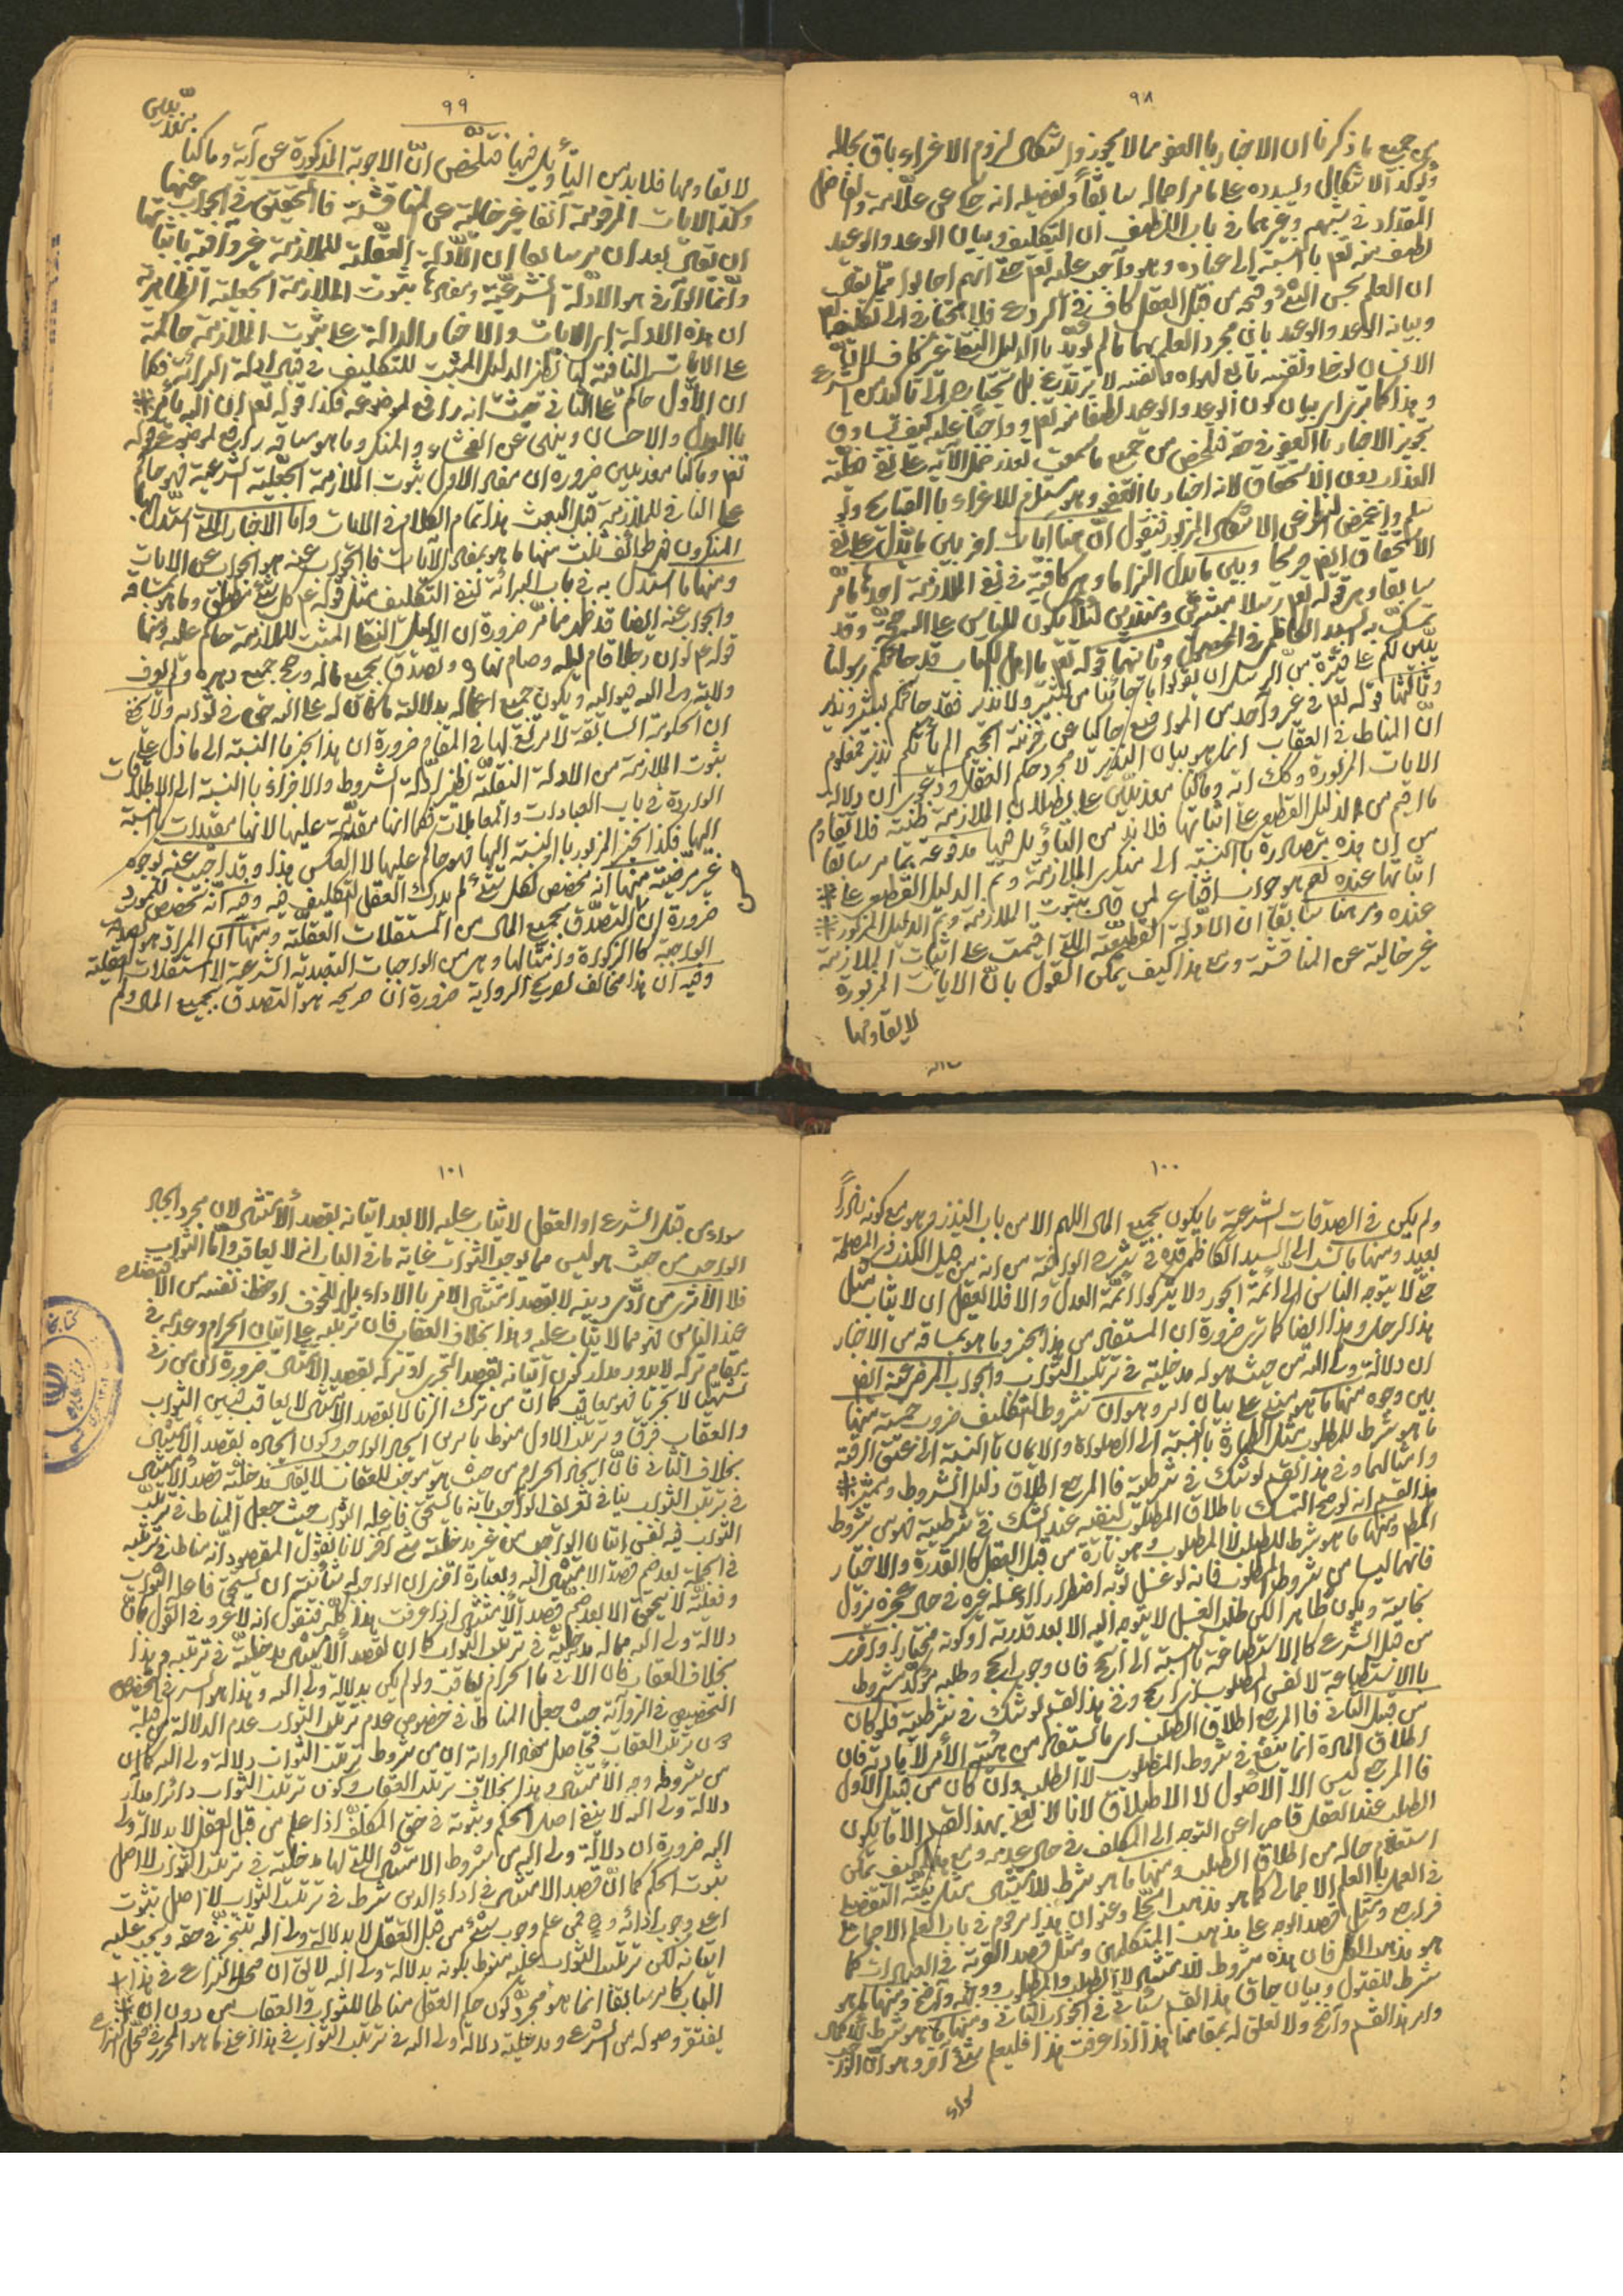 ٩٨
من جميع ما ذكرنا ان الاخبار بالعفو مما لا يجوز واشكال لزوم الاغراء باق بحاله
ويؤكد الاشكال ويسدده على ما مر اجماله سابقاً وتفصيله انه حكى عن علامة والفاضل
المقداد في وغيرهما في باب اللطف ان التكليف وبيان الوعد والوعيد
لطف منه تعم بالنسبة الى عباده وهو واجب عليه تعم حتى انهم احالوا
ان العلم بحسن الشئ وقبحه من قبل العقل كاف في الردع فلا يحتاج الى تكليفه تعم
وبيانه الوعد والوعيد بان مجرد العلم بهما ما لم يؤيد بالدليل النقلى غير كاف
الانسان لو خلى ونفسه تابع لهواه ونفسه لا يرتدع بل يحتاج الى تأكيد من الشرع
وهذا كما ترى بيان كون الوعد والوعيد لطفا منه تعم وواجبا عليه كيف
تجويز الاخبار بالعفو في حقه فتلخص من جميع ما سمعت تعذر حمل الآية على نفى فعلية
العذاب دون الاستحقاق لانه اخبار بالعفو وهو مستلزم للاغراء بالقبايح ولو
سلم واغمض النظر عن الاشكال المزبور فنقول ان هنا ايات اخر بين ما يدل على نفى
الاستحقاق ايضم صريحا وبين ما يدل التزاما وهى كافية في نفى الملازمة احدها ما مر
سابقا وهى قوله تعم رسلا مبشرين ومنذرين لئلا يكون للناس على الله حجة وقد
تمسك به السيد الكاظمى في المحصول وثانيها قوله تعم يا اهل الكتاب قد جائكم رسولنا
يبين لكم على فترة من الرسل ان تقولوا ما جائنا من بشير ولا نذير فقد جائكم بشير ونذير
وثالثها قوله تعم في غير واحد من المواضع حاكيا عن خزنة الجحيم الم يأتكم نذير فمعلوم
ان المناط في العقاب انما هو بيان النذير لا مجرد حكم العقل ودعوى ان دلالة
الايات المزبورة وكك اية وما كنا معذبين على بطلان الملازمة ظنية فلا تقاوم
ما اقيم من الدليل القطعى على اثباتها فلا بد من التأويل فيها مدفوعة بما مر سابقا
من ان هذه مصادرة بالنسبة الى منكرى الملازمة ولم الدليل القطعى على
اثباتها عنده نعم هو جواب اقناعى لمن قال بثبوت الملازمة وتم الدليل المزبور
عنده ومر هنا سابقا ان الادلة القطعية التى اقيمت على اثبات الملازمة
غير خالية عن المناقشة ومع هذا كيف يمكن القول بان الايات المزبورة
لا يقاومها
٩٩
معذبين
لا يقاومها فلا بد من التأويل فيها فتلخص ان الاجوبة المذكورة عن آية وما كنا
وكذا الايات المرقومة آنفا غير خالية عن المناقشة فالتحقيق في الجواب عنها
ان يقال بعد ان مر سابقا ان الادلة العقلية للملازمة غير وافية باثباتها
وانما الوافى هو الادلة الشرعية ومفادها ثبوت الملازمة الجعلية الظاهرية
ان هذه الادلة اى الايات والاخبار الدالة على ثبوت الملازمة حاكمة
على الايات النافية لها نظير الدليل المثبت للتكليف في قبال ادلة البرائة فكما
ان الاول حاكم على الثانى حيث انه رافع لموضوعه فكذا قوله تعم ان الله يأمر
بالعدل والاحسان وينهى عن الفحشاء والمنكر وما هو بمساقه رافع لموضوع قوله
تعم وما كنا معذبين ضرورة ان مفاد الاول ثبوت الملازمة الجعلية الشرعية فهو حاكم
على النافى للملازمة قبل البعث هذا تمام الكلام في الايات واما الاخبار التى استدل بها
المنكرون فهى طوائف ثلث منها ما هو بمفاد الآيات فالجواب عنه هو الجواب عن الايات
ومنها ما استدل به في باب البرائة لنفى التكليف مثل قوله ع كل شئ مطلق وما هو بمساقه
والجواب عنه ايضا قد ظهر مما مر ضرورة ان الدليل النقلى المثبت للملازمة حاكم عليه ومنها
قوله ع لو ان رجلا قام ليله وصام نهاره وتصدق بجميع ماله وحج جميع دهره ولم يعرف
ولاية ولى الله فيواليه ويكون جميع اعماله بدلالته ما كان له على الله حق في ثوابه ولا يخفى
ان الحكومة السابقة لا مرتع لها في المقام ضرورة ان هذا الخبر بالنسبة الى ما دل على
ثبوت الملازمة من الادلة النقلية نظير ادلة الشروط والاجزاء بالنسبة الى الاطلاقات
الواردة في باب العبادات والمعاملات فكما انها مقدمة عليها لانها مقيدات بالنسبة
اليها فكذا الخبر المزبور بالنسبة اليها فهو حاكم عليها لا العكس هذا وقد اجيب عنه بوجوه
غير مرضية منها انه مخصص لكل شئ لم يدرك العقل التكليف فيه وفيه انه تخصص للمورد
ضرورة ان التصدق بجميع المال من المستقلات العقلية ومنها ان المراد هو الصدقة
الواجبة كالزكوة وامثالها وهى من الواجبات التعبدية الشرعية لا المستقلات العقلية
وفيه ان هذا مخالف لصريح الرواية ضرورة ان صريحه هو التصدق بجميع المال ولم
١٠٠
ولم يكن في الصدقات الشرعية ما يكون بجميع المال اللهم الا من باب النذر وهو مع كونه نادراً
بعيد ومنها ما نسب الى السيد الكاظمى قده في شرح الوافية من انه من قبيل الكذب لمصلحة
حتى لا يتوجه الناس الى ائمة الجور ولا يتركوا ائمة العدل والا فلا يعقل ان لا يثاب مثل
هذا الرجل وهذا ايضا كما ترى ضرورة ان المستفاد من هذا الخبر وما هو بمساقه من الاخبار
ان دلالة ولى الله من حيث هو له مدخلية في ترتب الثواب والجواب المرضى عنه ايضم
بين وجوه منها ما هو مبنى على بيان امر وهو ان شروط التكليف ضروب خمسة منها
ما هو شرط للمطلوب مثل الطهارة بالنسبة الى الصلوة والايمان بالنسبة الى عتق الرقبة
وامثالهما وفي هذا القسم لو شك في شرطيته فالمرجع اطلاق دليل المشروط وميزه
هذا القسم انه لو صح التمسك باطلاق المطلوب لنفيه عند الشك في شرطيته فهو من شروط
المطلوب ومنها ما هو شرط للطلب لا المطلوب وهو تارة من قبل العقل كالقدرة والاختيار
فانهما ليسا من شروط المطلوب فانه لو غسل ثوبه اضطرارا او غسله غيره في حال عجزه تزول
نجاسته ويكون طاهرا لكن طلب الغسل لا يتوجه اليه الا بعد قدرته وكونه مختارا واخرى
من قبل الشرع كالاستطاعة بالنسبة الى الحج فان وجوب الحج وطلبه مؤكد مشروط
بالاستطاعة لا نفس المطلوب اى الحج وفي هذا القسم لو شك في شرطيته فلو كان
من قبل الثانى فالمرجع اطلاق الطلب اى ما يستفاد من هيئة الامر لا مادته فان
اطلاق المادة انما ينفع في شروط المطلوب لا الطلب وان كان من قبيل الاول
فالمرجع ليس الا الاصول لا الاطلاق لانا لا نعنى بهذا القسم الا ما يكون
الطلب عند العقل قاصرا عن التوجه الى المكلف في حال عدمه ومع هذا كيف يمكن
استعلام حاله من اطلاق الطلب ومنها ما هو شرط للامتثال مثل نية التفصيلى
في العمل بالعلم الاجمالى كما هو مذهب الحلى وعنوان هذا مرقوم في باب العلم الاجمالى
فراجع ومثل قصد الوجه على مذهب المتكلمين ومثل قصد القربة في العبادات كما
هو مذهب الكل فان هذه شروط للامتثال لا الطلب والمطلوب ووجهه واضح ومنها ما هو
شرط للقبول وبيان حال هذا القسم سيأتى في الجواب الثانى ومنها ما هو شرط للاعمال
وامر هذا القسم واضح ولا تعلق له بمقامنا هذا اذا عرفت هذا فليعلم شئ آخر وهو ان الواجب
سواء
١٠١
سواء من قبل الشرع او العقل لا يثاب عليه الا بعد اتيانه بقصد الامتثال لان مجرد ايجاد
الواجب من حيث هو ليس مما يوجب الثواب غاية ما في الباب انه لا يعاقب واما الثواب
فلا الا ترى من ادى دينه لا بقصد امتثال الامر بالاداء بل للخوف او حفظ نفسه من الافتضاح
عند الناس فهو مما لا يثاب عليه وهذا بخلاف العقاب فان ترتبه على اتيان الحرام وعدمه في
مقام تركه لا يدور مدار كون اتيانه بقصد التجرى او تركه بقصد الامتثال ضرورة ان من زنى
تشهيا لا تجريا فهو يعاقب كما ان من ترك الزنا لا بقصد الامتثال لا يعاقب فبين الثواب
والعقاب فرق وترتب الاول منوط بامرين ايجاد الواجب وكون ايجاده بقصد الامتثال
بخلاف الثانى فان ايجاد الحرام من حيث هو موجب للعقاب لا يقال مدخلية قصد الامتثال
في ترتب الثواب ينافى تعريف الواجب بانه ما يستحق فاعله الثواب حيث جعل المناط في ترتب
الثواب فيه نفس اتيان الواجب من غير مدخلية شئ آخر لانا نقول المقصود انه مناط في ترتبه
في الجملة بعد ضم قصد الامتثال اليه وبعبارة اخرى ان الواجب له شأنية ان يستحق فاعله الثواب
وفعليته لا يتحقق الا بعد ضم قصد الامتثال اذا عرفت هذا كله فنقول انه لا غرو في القول بان
دلالة ولى الله مما له مدخلية في ترتب الثواب كما ان لقصد الامتثال مدخلية في ترتبه وهذا
بخلاف العقاب فان الآتى بالحرام يعاقب ولو لم يكن بدلالة ولى الله وهذا هو السر في
التخصيص في الرواية حيث جعل المناط في خصوص عدم ترتب الثواب عدم الدلالة من قبله
دون ترتب العقاب فحاصل مفاد الرواية ان من شروط ترتب الثواب دلالة ولى الله كما ان
من شروطه وجه الامتثال وهذا بخلاف ترتب العقاب وكون ترتب الثواب دائرا مدار
دلالة ولى الله لا ينفى اصل الحكم وثبوته في حق المكلف اذا علم من قبل العقل لا بدلالة ولى
الله ضرورة ان دلالة ولى الله من شروط الامتثال التى لها مدخلية في ترتب الثواب لا اصل
ثبوت الحكم كما ان قصد الامتثال في اداء الدين شرط في ترتب الثواب لا اصل ثبوت
اعنى وجوب ادائه وح فمن علم وجوب شئ من قبل العقل لا بدلالة ولى الله يتنجز في حقه ويجب عليه
اتيانه لكن ترتب الثواب عليه منوط بكونه بدلالة ولى الله لا يق ان محل النزاع في هذا
الباب كما مر سابقا انما هو مجرد كون حكم العقل مناطا للثواب والعقاب من دون ان
يفتقر وصوله من الشرع ومدخلية دلالة ولى الله في ترتب الثواب في هذا اعنى ما هو المحرر في محل النزاع